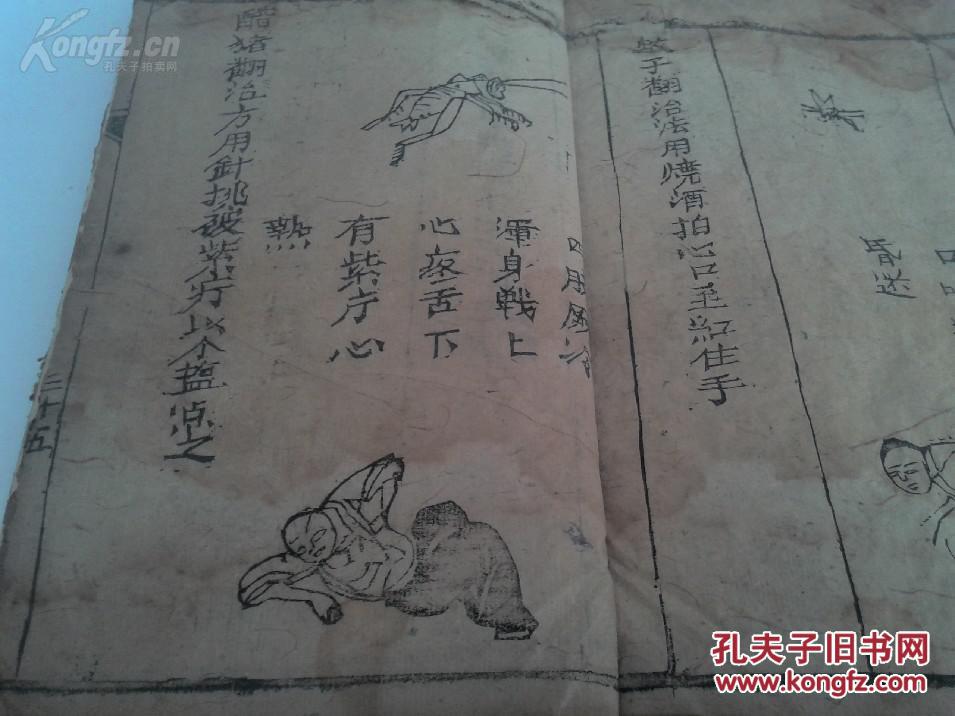 昏迷
蚊子翻治法用燒酒拍心口至紅住手
渾身戰上
心疼舌下
有紫疔心
熱
醋猪翻治方用針挑破紫疔以个塩点之
三十五
Kongfz.cn
孔夫子拍卖网
孔夫子旧书网
www.kongfz.com